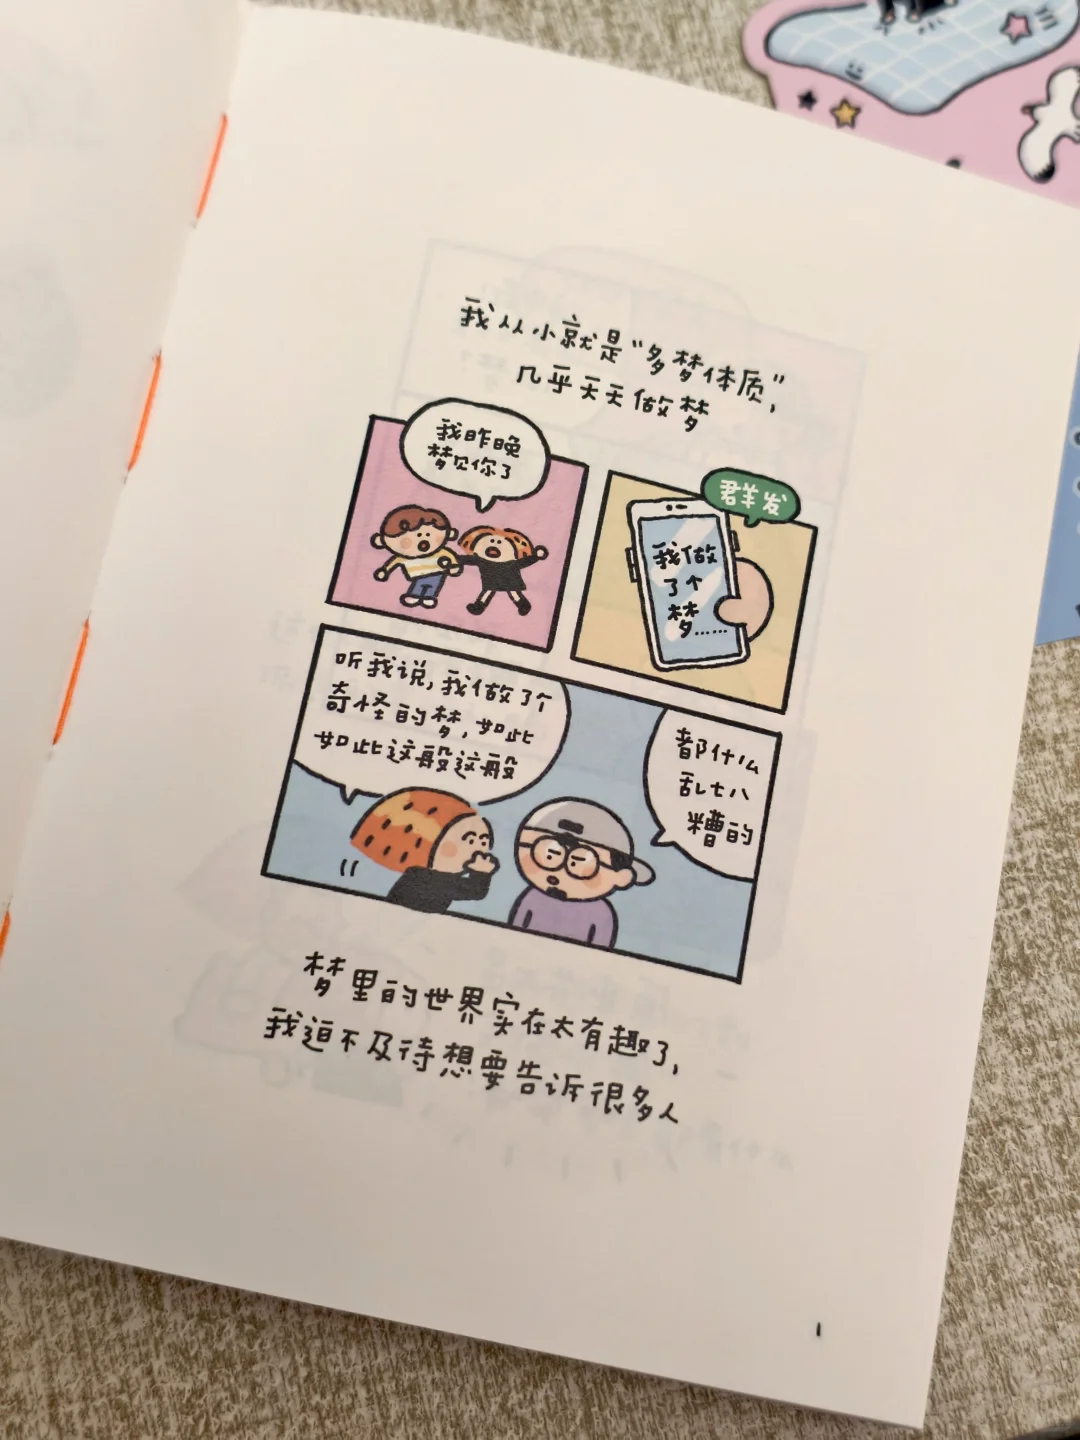 我从小就是“多梦体质”，
几乎天天做梦
我昨晚
梦见你了
群发
我做
了个
梦……
听我说，我做了个
奇怪的梦，如此
如此这般这般
都什么
乱七八
糟的
梦里的世界实在太有趣了，
我迫不及待想要告诉很多人
1